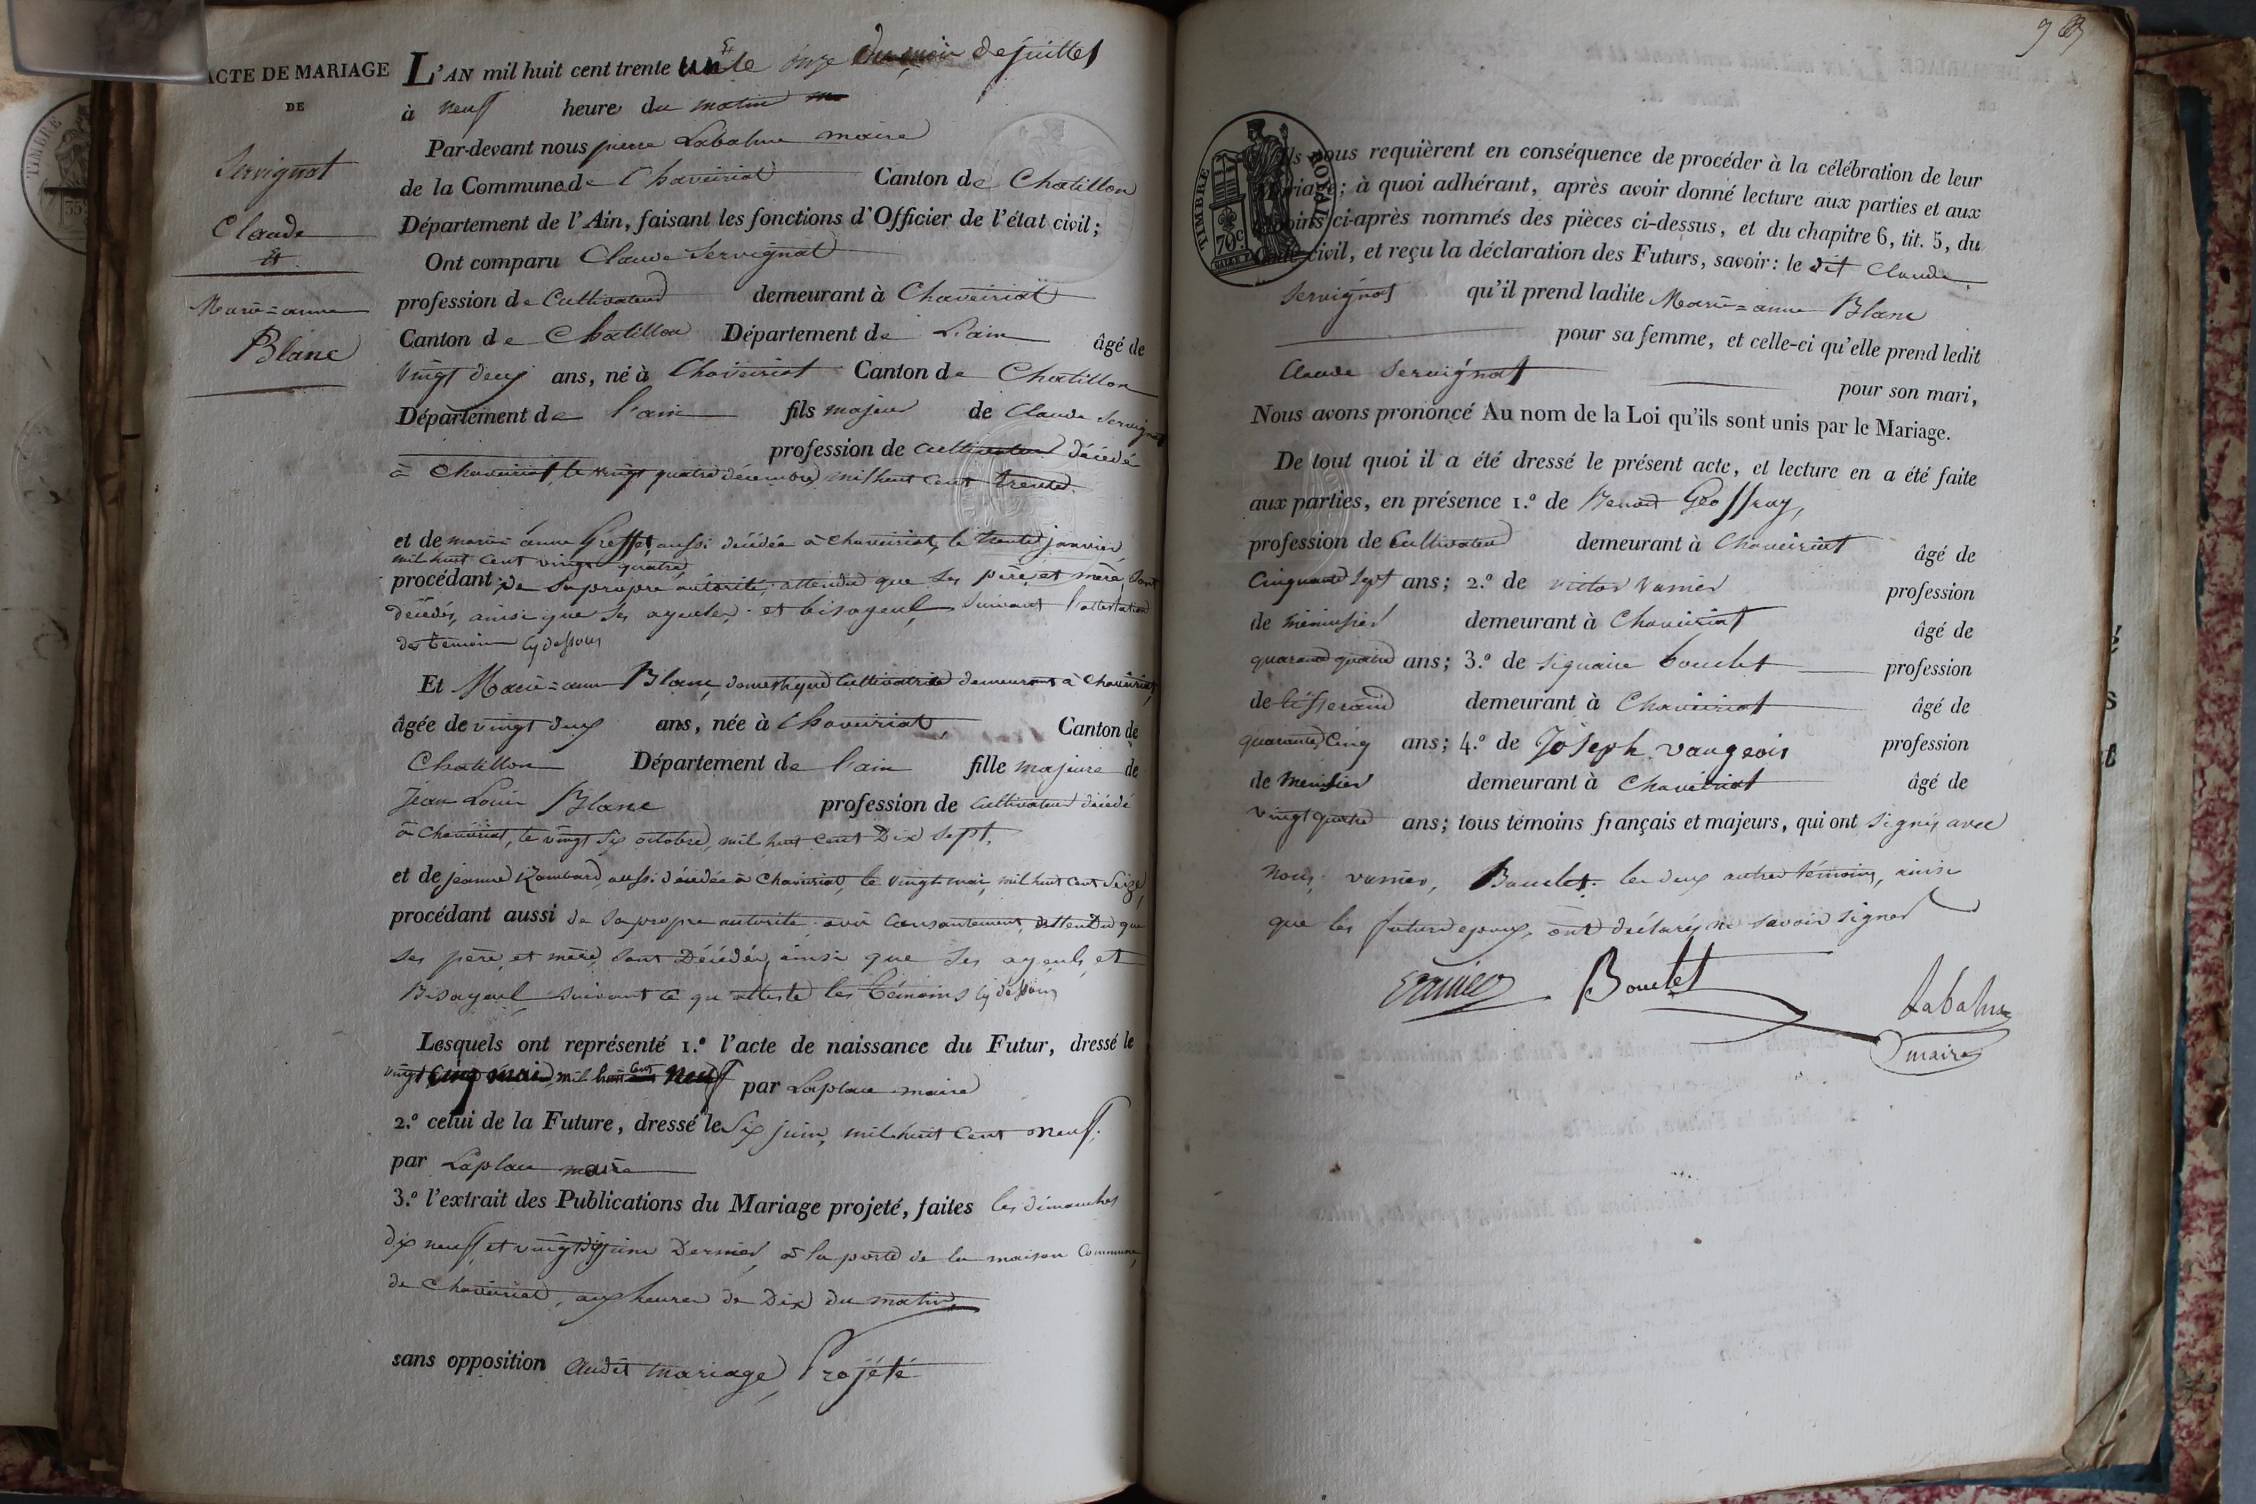 ACTE DE MARIAGE
DE
Servignat
Claude
et
Marie=anne
Blanc
L'AN mil huit cent trente un et le onze du mois de juillet
à neuf heure du matin
Par-devant nous pierre Labalme maire
de la Commune de Chaveiriat Canton de Chatillon
Département de l'Ain, faisant les fonctions d'Officier de l'état civil;
Ont comparu Claude Servignat
profession de Cultivateur demeurant à Chaveiriat
Canton de Chatillon Département de L'ain âgé de
vingt deux ans, né à Chaveiriat Canton de Chatillon
Département de l'ain fils majeur de Claude Servignat
profession de cultivateur décédé
à Chaveiriat, le vingt quatre décembre mil huit cent trente
et de marie anne Greffet, aussi décédée à Chaveiriat, le trente janvier
mil huit cent vingt quatre,
procédant de sa propre autorité, attendu que ses père et mère sont
décédés, ainsi que ses ayeules, et bisayeul, suivant l'attestation
des témoin cy dessous
Et Marie=anne Blanc, domestique Cultivatrice demeurant à Chaveiriat
âgée de vingt deux ans, née à Chaveiriat, Canton de
Chatillon Département de l'ain fille majeure de
Jean Louis Blanc profession de cultivateur décédé
à Chaveiriat, le vingt six octobre, mil huit cent Dix sept,
et de jeanne aussi décédée à Chaveiriat, le vingt mai, mil huit cent Seize,
procédant aussi de sa propre autorité attendu que
ses père et mère, sont Décédés, ainsi que ses ayeuls, et
Bisayeul, suivant ce qu atteste les témoins cy dessous
Lesquels ont représenté 1.º l'acte de naissance du Futur, dressé le
vingt cinq mai mil huit cent neuf par Laplace maire
2.º celui de la Future, dressé le Six juin, mil huit cent neuf,
par Laplace maire
3.º l'extrait des Publications du Mariage projeté, faites les dimanches
dix neuf, et vingt six juin Dernier, à la porte de la maison Commune,
de Chaveiriat, aux heures de Dix du matin,
sans opposition audit mariage, Projété
9
TIMBRE ROYAL
70c.
Ils nous requièrent en conséquence de procéder à la célébration de leur
mariage; à quoi adhérant, après avoir donné lecture aux parties et aux
témoins ci-après nommés des pièces ci-dessus, et du chapitre 6, tit. 5, du
Code civil, et reçu la déclaration des Futurs, savoir: le dit Claude
Servignat qu'il prend ladite Marie=anne Blanc
pour sa femme, et celle-ci qu'elle prend ledit
Claude Servignat pour son mari,
Nous avons prononcé Au nom de la Loi qu'ils sont unis par le Mariage.
De tout quoi il a été dressé le présent acte, et lecture en a été faite
aux parties, en présence 1.º de Benoit Geoffray,
profession de Cultivateur demeurant à Chaveiriat âgé de
Cinquante Sept ans; 2.º de victor vanier profession
de menuisier demeurant à Chaveiriat âgé de
quarante quatre ans; 3.º de bouclet profession
de tisserand demeurant à Chaveiriat âgé de
quarante Cinq ans; 4.º de Joseph vaugeois profession
de Menisier demeurant à Chaveiriat âgé de
vingt quatre ans; tous témoins français et majeurs, qui ont signés avec
nous, vanier, Bouclet. les deux autres témoins, ainsi
que les futurs epoux, ont déclarés ne savoir signer
Vanier Bouclet Labalme
maire